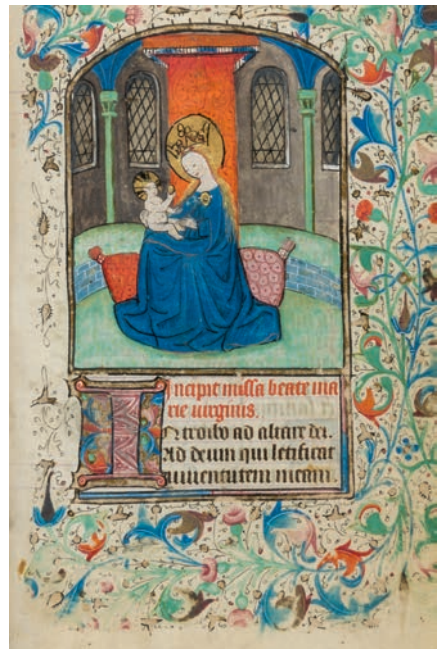 Incipit missa beate ma
rie uirginis.
INtroibo ad altare dei.
Ad deum qui letificat
iuuentutem meam.